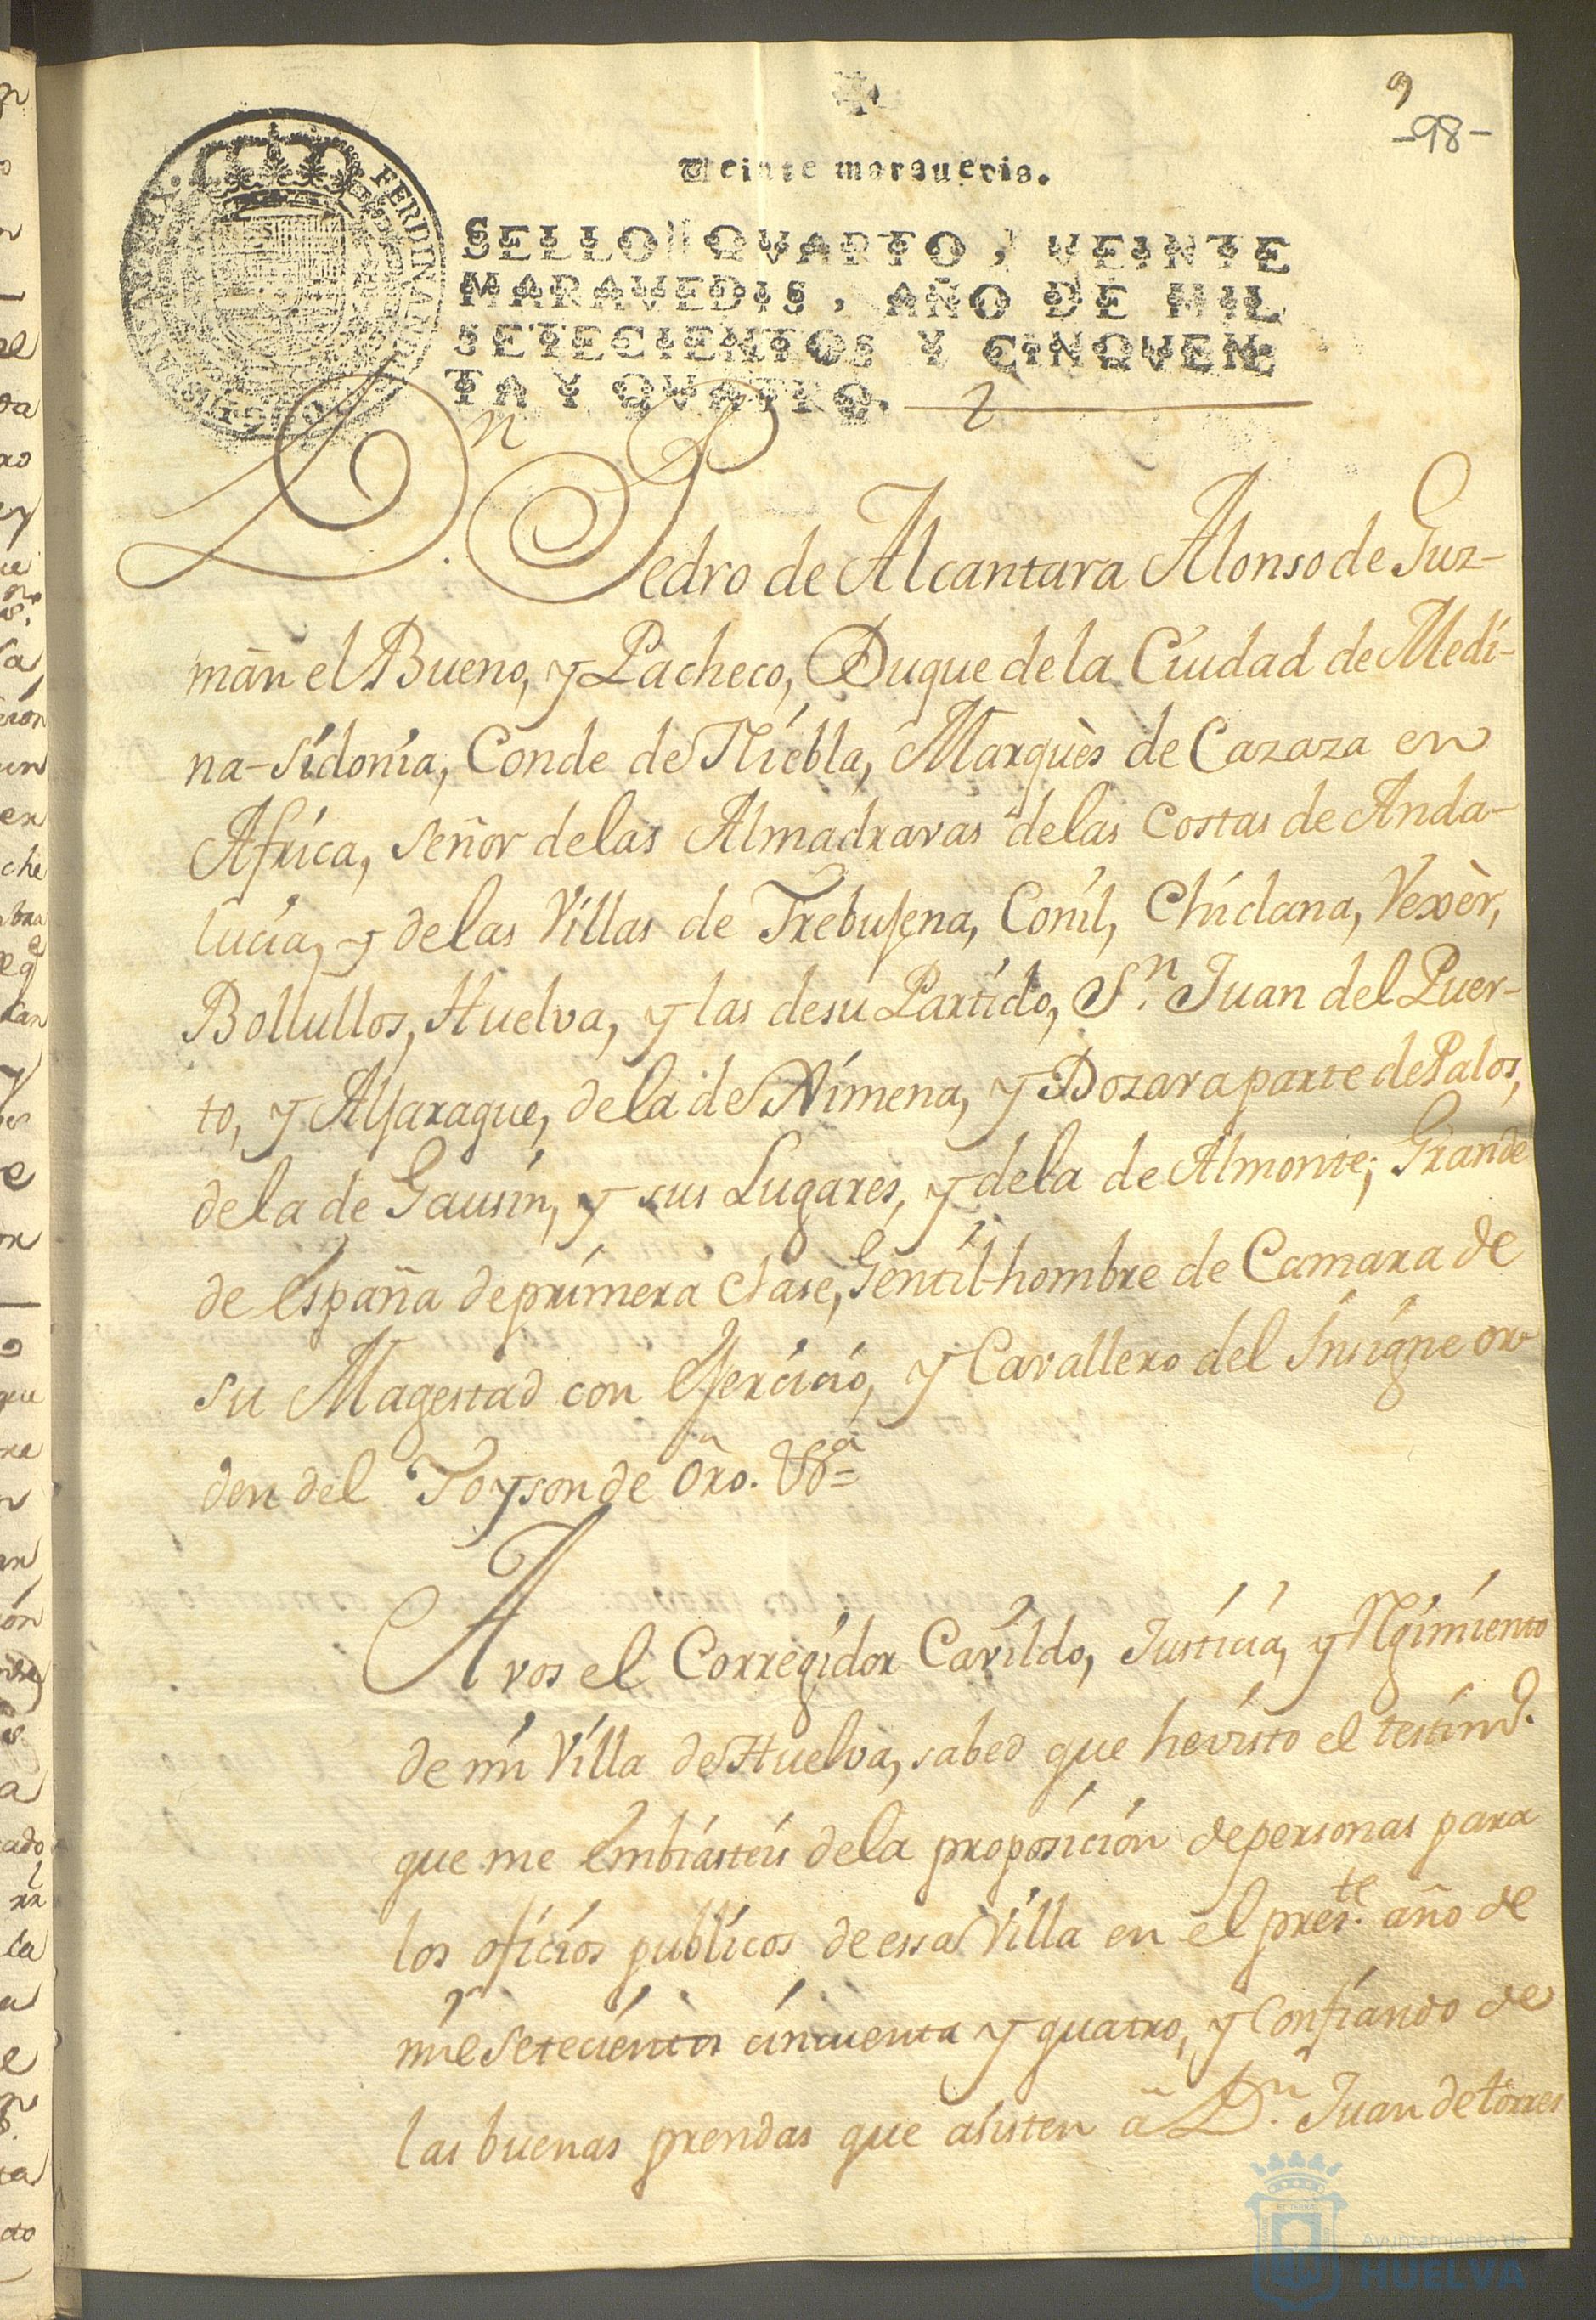 9
-98-
Veinte maravedis.
SELLO QVARTO, VEINTE
MARAVEDIS, AÑO DE MIL
SETECIENTOS Y CINQVEN-
TA Y QVATRO.
FERDINAND
D.n Pedro de Alcantara Alonso de Guz-
mãn el Bueno, y Pacheco, Duque de la Ciudad de Medi-
na-Sidonia, Conde de Niebla, Marquès de Cazaza en
Africa, Señor de las Almadravas de las Costas de Anda-
lucia, y de las Villas de Trebujena, Conil, Chiclana, Vexèr,
Bollullos, Huelva, y las de su Partido, S.n Juan del Puer-
to, y Aljaraque, de la de Ximena, y Dozava parte de Palos,
de la de Gausin, y sus Lugares, y de la de Almonte; Grande
de España de primera clase, Gentil-hombre de Camara de
su Magestad con Exercicio, y Cavallero del Insigne or
den del Toyson de Oro. V.a
A vos el Corregidor Cavildo, Justicia, y Rgimiento
de mi Villa de Huelva, sabed que he visto el testim.o
que me embiasteis de la proposicion de personas para
los oficios publicos de essa Villa en el pres.te año de
mil setecientos cincuenta y quatro, y confiando de
las buenas prendas que asisten ã D.n Juan de torres
Ayuntamiento de
HUELVA